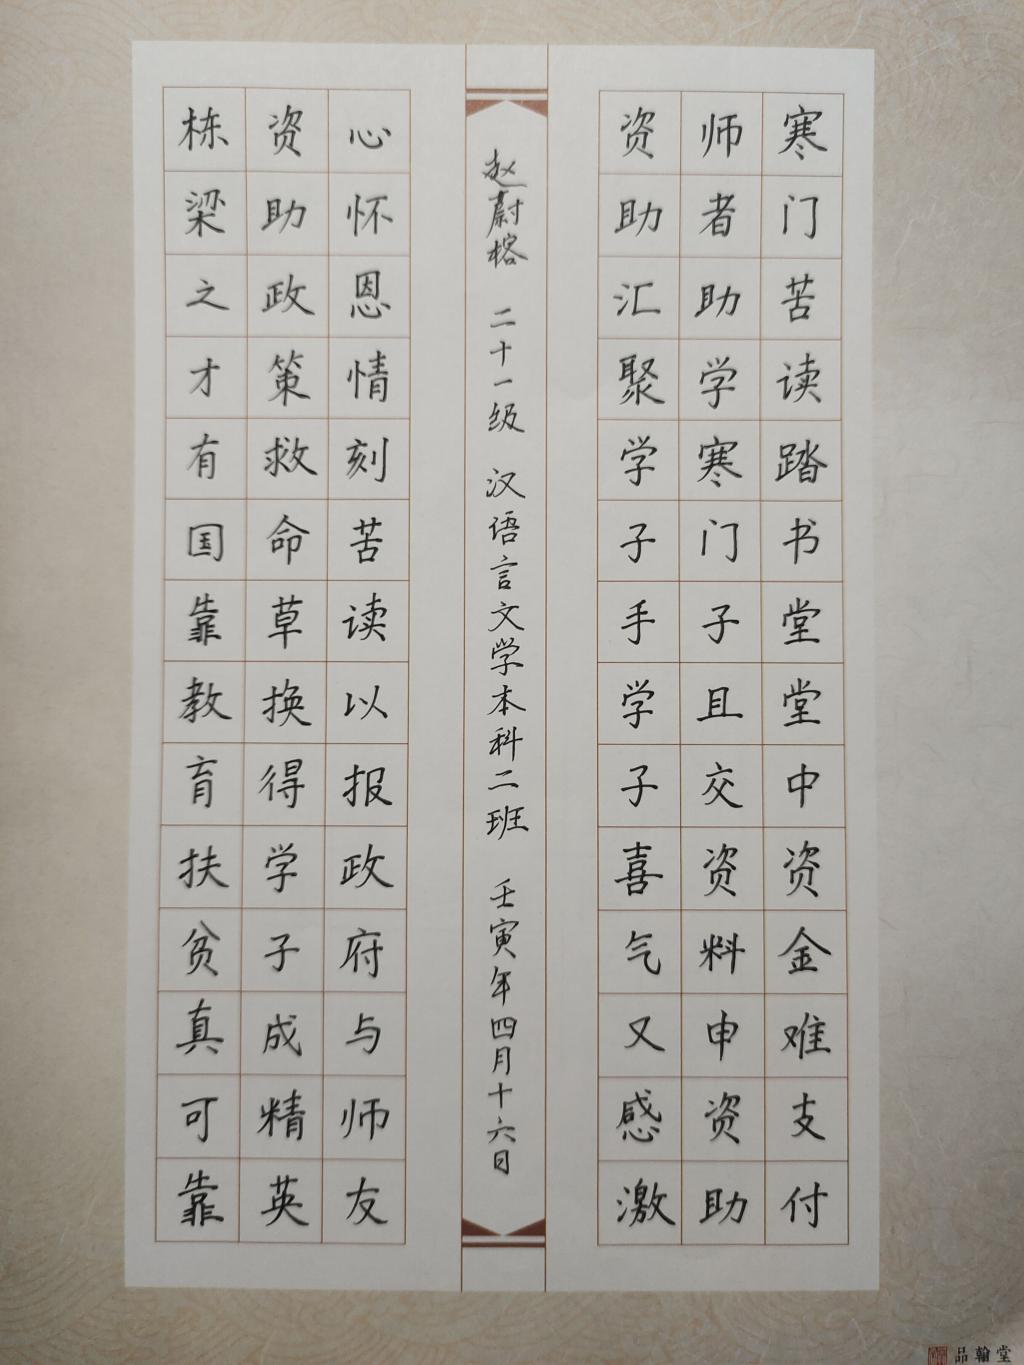 寒门苦读踏书堂堂中资金难支付
师者助学寒门子且交资料申资助
资助汇聚学子手学子喜气又感激
赵蔚榕 二十一级 汉语言文学本科二班 壬寅年四月十六日
心怀恩情刻苦读以报政府与师友
资助政策救命草换得学子成精英
栋梁之才有国靠教育扶贫真可靠
品翰堂